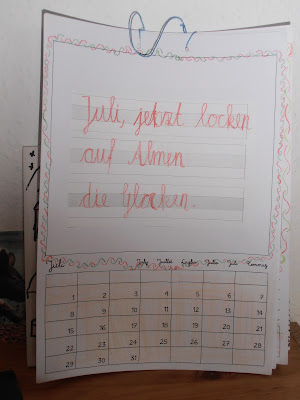 Juli, jetzt locken
auf Almen
die Glocken.
Juli July Juillet Luglio Julio
1 2 3 4 5 6 7
8 9 10 11 12 13 14
15 16 17 18 19 20 21
22 23 24 25 26 27 28
29 30 31